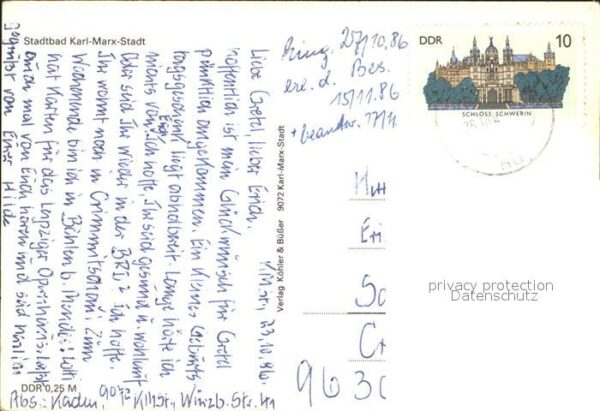 Stadtbad Karl-Marx-Stadt
KMSt, 23.10.86.
Liebe Gretel, lieber Erich,
hoffentlich ist mein Glückwunsch für Gretel
pünktlich angekommen. Ein kleines Geburts-
tagsgeschenk liegt abholbereit. Lange hörte ich
nichts von Euch. Ich hoffe, Ihr seid gesund u. wohlauf.
Oder seid Ihr wieder in der BRD? Ich hoffe,
Ihr wohnt noch in Crimmitschau. Zum
Wochenende bin ich in Böhlen b.
hat Karten für das Leipziger Opernhaus. Laßt
auch mal von Euch hören und seid
gegrüßt von Eurer Hilde
DDR 0,25 M
Abs.: Kaden, 9072 KMSt, Winzb. Str. 41
Verlag Köhler & Büßer 9072 Karl-Marx-Stadt
Eing. 25/10.86
ere. d. Bes.
15/11.86
+ beantw. 17/11
DDR 10
SCHLOSS SCHWERIN
Eri
Sc
C
963
privacy protection
Datenschutz